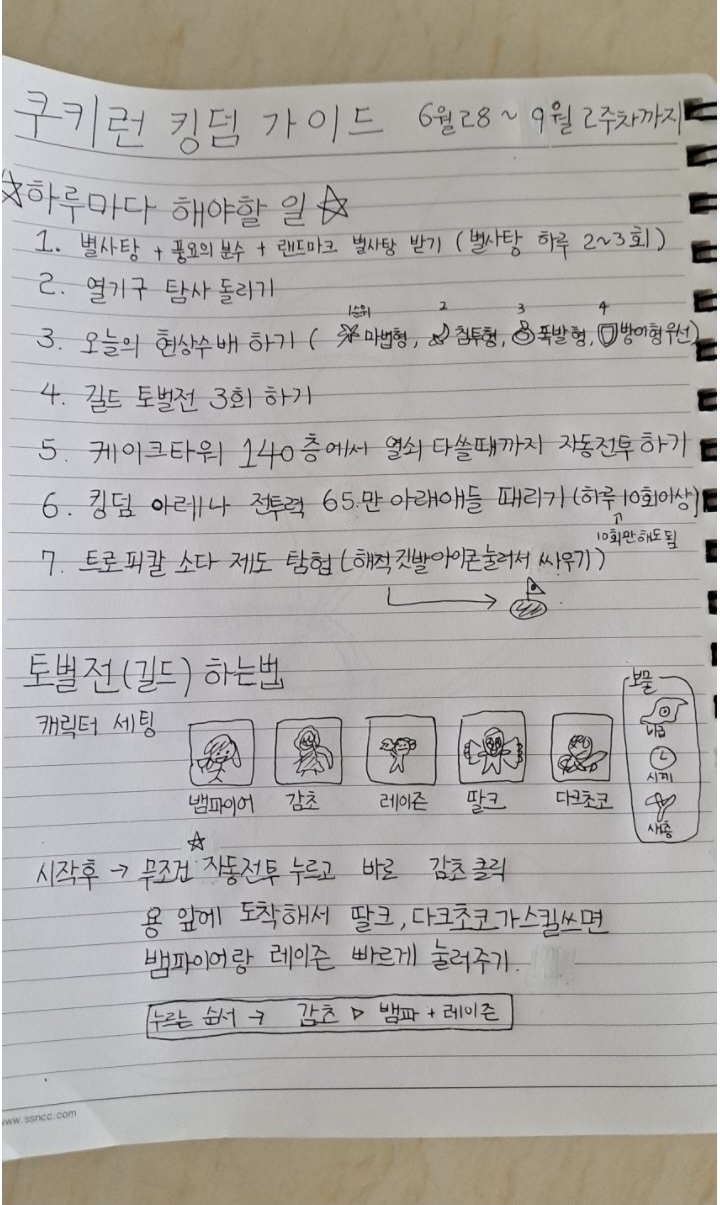 쿠키런 킹덤 가이드 6월28 ~ 9월 2주차까지
☆하루마다 해야할 일☆
1. 별사탕 + 풍요의 분수 + 랜드마크 별사탕 받기 (별사탕 하루 2~3회)
2. 열기구 탐사 돌리기
1순위 2 3 4
3. 오늘의 현상수배 하기 ( 마법형, 침투형, 폭발형, 방어형 우선)
4. 길드 토벌전 3회 하기
5. 케이크타워 140층에서 열쇠 다쓸때까지 자동전투 하기
6. 킹덤 아레나 전투력 65만 아래애들 때리기 (하루 10회이상)
10회만해도됨
7. 트로피칼 소다 제도 탐험 (해적깃발아이콘눌러서 싸우기)
토벌전(길드) 하는법
캐릭터 세팅
뱀파이어 감초 레이즌 딸크 다크초코
보물
시계
새총
시작후 → 무조건 ☆자동전투 누르고 바로 감초 클릭
용 앞에 도착해서 딸크, 다크초코가 스킬쓰면
뱀파이어랑 레이즌 빠르게 눌러주기.
누르는 순서 → 감초 ▷ 뱀파 + 레이즌
www.ssncc.com